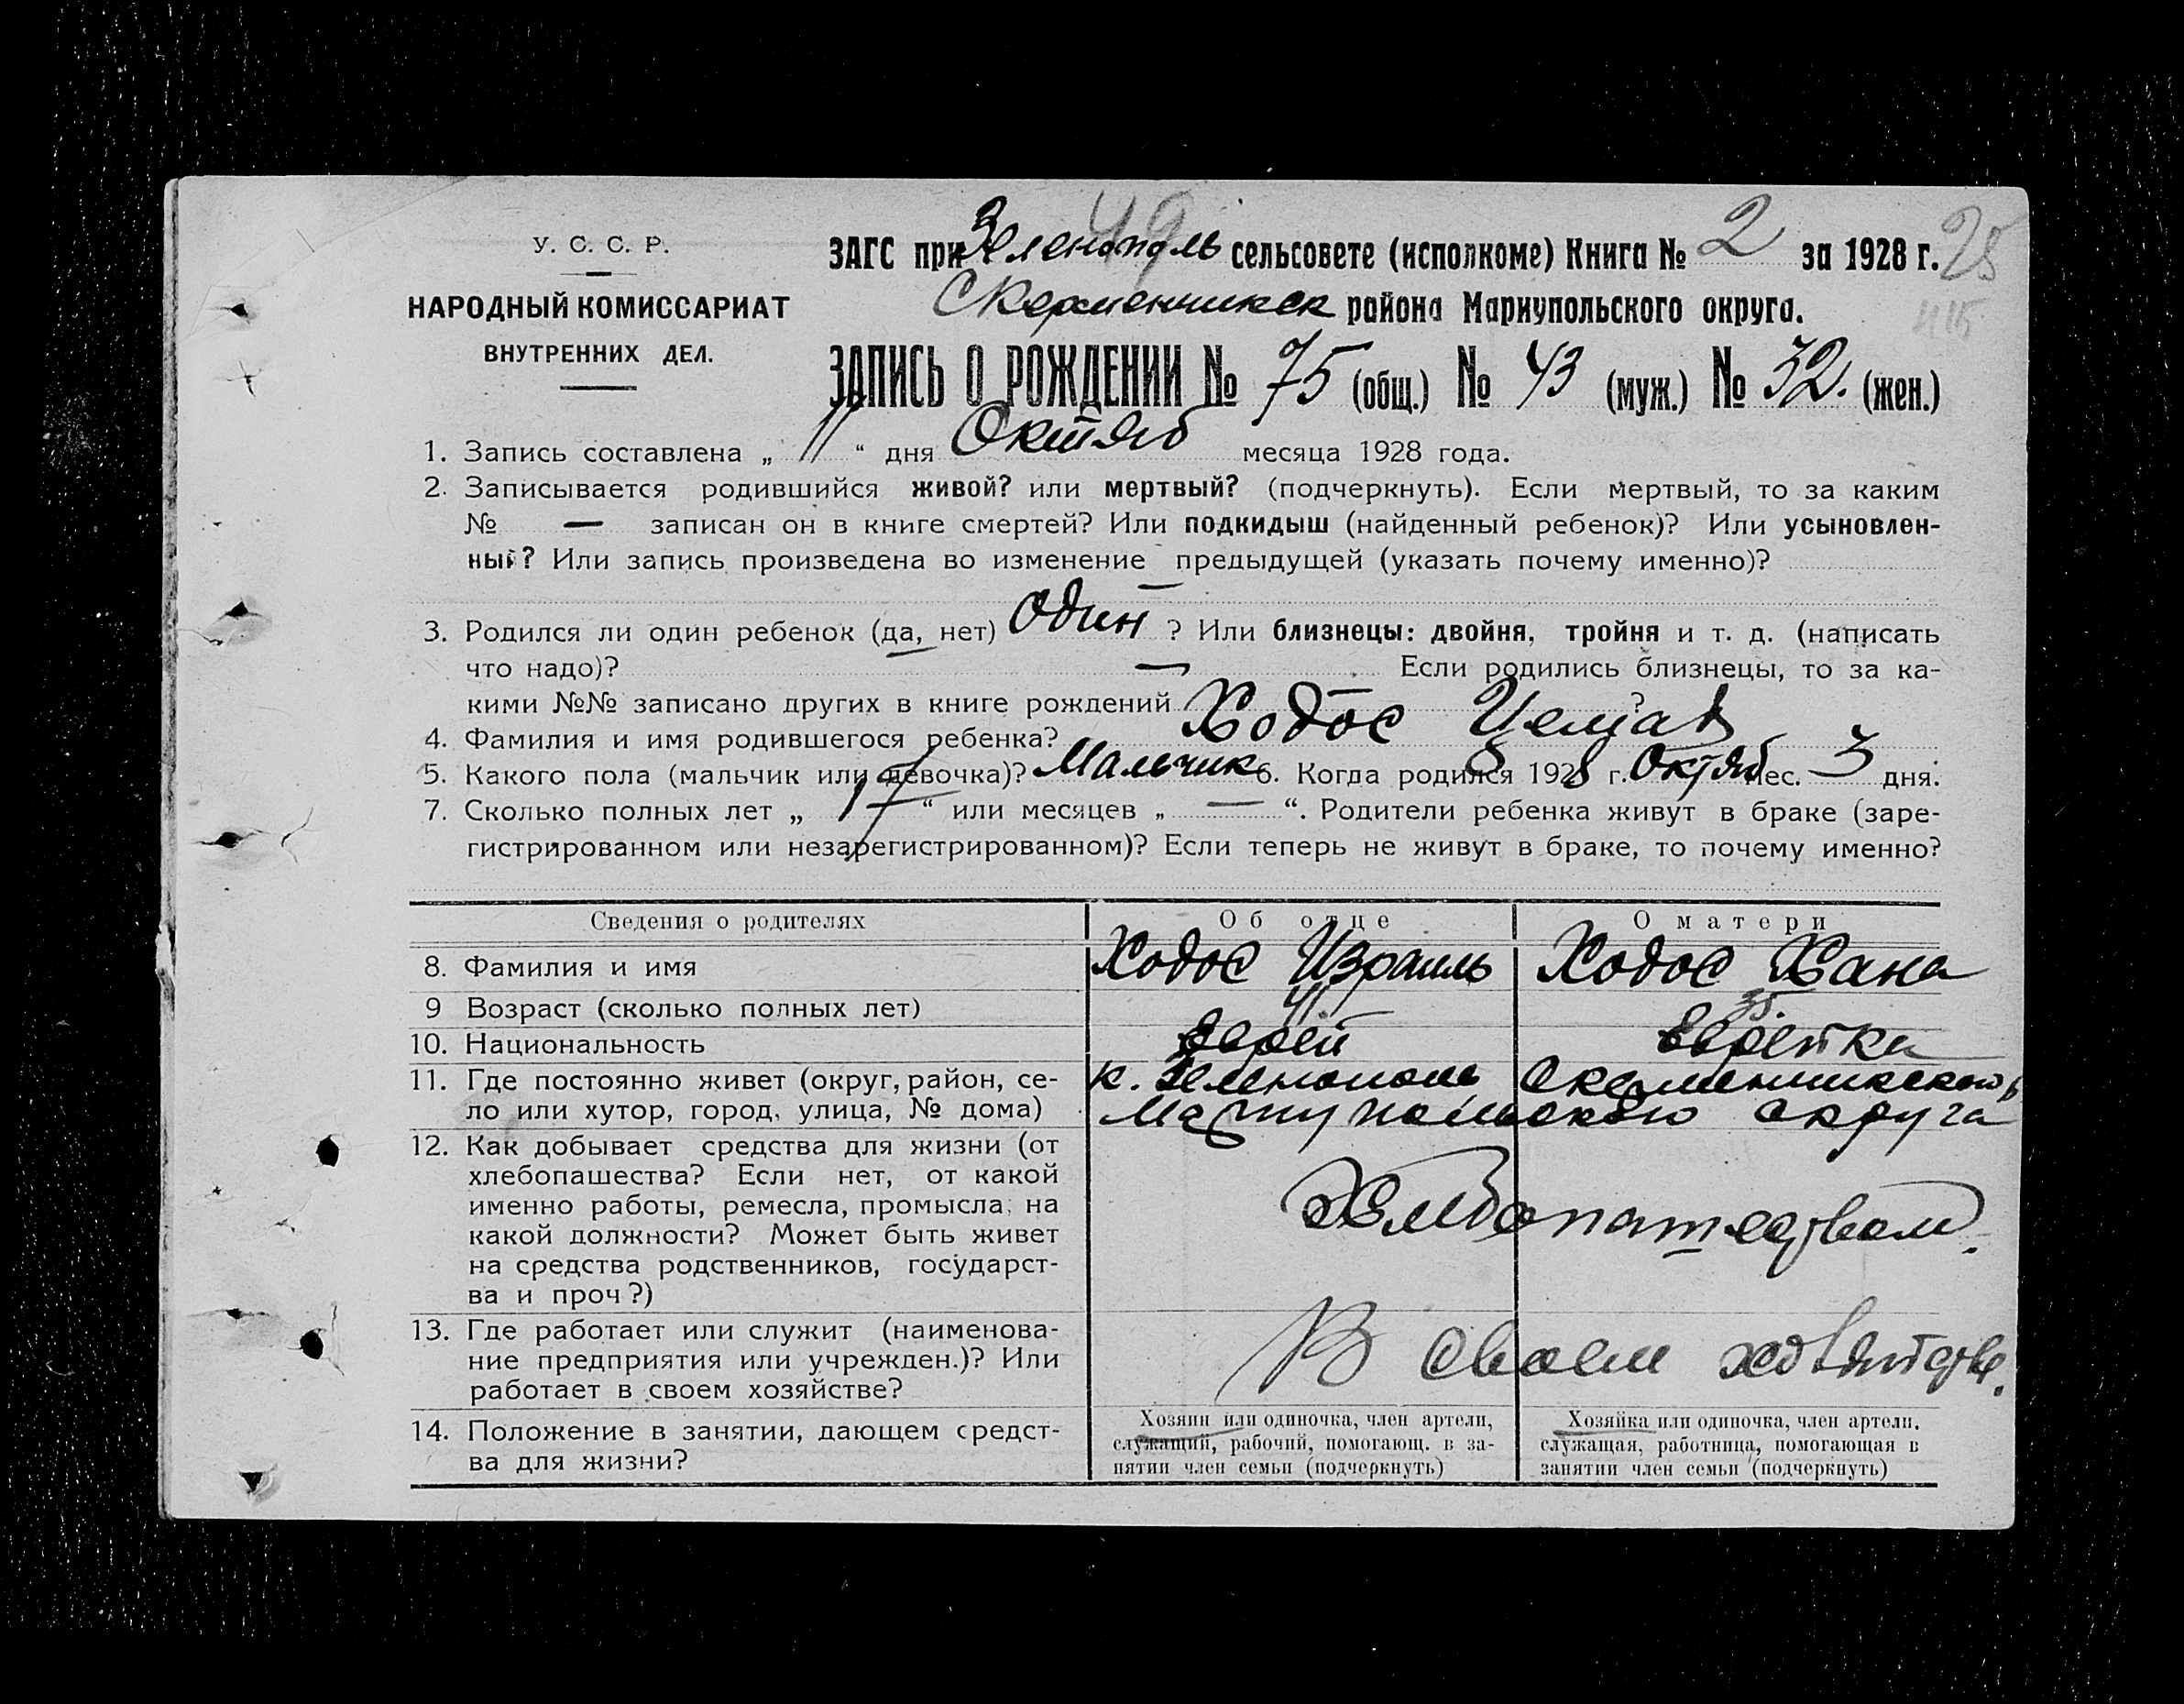 49
У. С. С. Р.
НАРОДНЫЙ КОМИССАРИАТ
ВНУТРЕННИХ ДЕЛ.
ЗАГС при Зеленополь сельсовете (исполкоме) Книга № 2 за 1928 г. 25
района Мариупольского округа.
ЗАПИСЬ О РОЖДЕНИИ № 75 (общ.) № 43 (муж.) № 32. (жен.)
1. Запись составлена „ 11 “ дня Октяб месяца 1928 года.
2. Записывается родившийся живой? или мертвый? (подчеркнуть). Если мертвый, то за каким
№ — записан он в книге смертей? Или подкидыш (найденный ребенок)? Или усыновлен-
ный? Или запись произведена во изменение предыдущей (указать почему именно)?
—
3. Родился ли один ребенок (да, нет) один ? Или близнецы: двойня, тройня и т. д. (написать
что надо)? — Если родились близнецы, то за ка-
кими №№ записано других в книге рождений — ?
4. Фамилия и имя родившегося ребенка? Ходос Цемах
5. Какого пола (мальчик или девочка)? Мальчик 6. Когда родился 1928 г. Октяб мес. 3 дня.
7. Сколько полных лет „ 17 “ или месяцев „ — “. Родители ребенка живут в браке (заре-
гистрированном или незарегистрированном)? Если теперь не живут в браке, то почему именно?
Сведения о родителях Об отце О матери
8. Фамилия и имя Ходос Израиль Ходос Хана
9 Возраст (сколько полных лет) 41. 35.
10. Национальность Еврей Еврейка
11. Где постоянно живет (округ, район, се-
ло или хутор, город, улица, № дома)
к. Зеленополь
Мариупольского округа
12. Как добывает средства для жизни (от
хлебопашества? Если нет, от какой
именно работы, ремесла, промысла, на
какой должности? Может быть живет
на средства родственников, государст-
ва и проч?)
Хлебопашеством.
13. Где работает или служит (наименова-
ние предприятия или учрежден.)? Или
работает в своем хозяйстве?
В своем хозяйстве.
14. Положение в занятии, дающем средст-
ва для жизни?
Хозяин или одиночка, член артели,
служащий, рабочий, помогающ. в за-
нятии член семьи (подчеркнуть)
Хозяйка или одиночка, член артели,
служащая, работница, помогающая в
занятии член семьи (подчеркнуть)